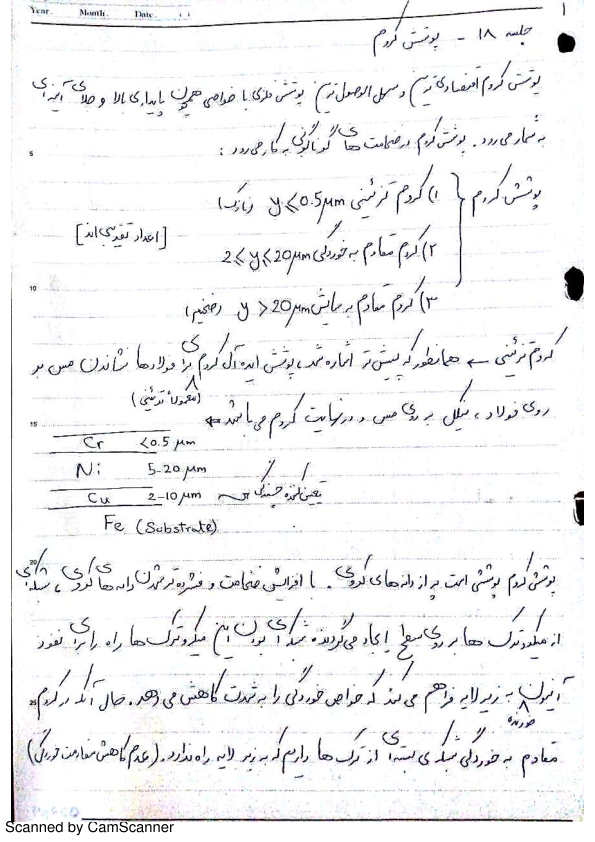 Year. Month. Date. ( )
۱
جلسه ۱۸ - پوشش کروم
پوشش کروم اقتصادی ترین و سهل الوصول ترین پوشش فلزی با خواصی همچون پایداری بالا و جلای آینه‌ای
به شمار می رود. پوشش کروم در ضخامت های گوناگونی به کار می رود:
5
پوشش کروم { ۱) کروم تزئینی y ≤ 0.5 μm (نازک)
۲) کروم مقاوم به خوردگی 2 ≤ y ≤ 20 μm [اعداد تقریبی اند]
10
۳) کروم مقاوم به سایش y > 20 μm (ضخیم)
کروم تزئینی ← همانطور که پیش تر اشاره شد، پوشش ایده آل کروم برای فولادها نشاندن مس بر
(معمولاً تزئینی)
روی فولاد، نیکل به روی مس و در نهایت کروم می باشد ⇐
15
Cr <0.5 μm
Ni 5-20 μm
Cu 2-10 μm تعیین کننده چسبندگی
Fe (Substrate)
20
پوشش کروم پوششی است پر از دانه های کروی. با افزایش ضخامت و فشرده تر شدن دانه ها کروی، شبکه ای
از میکروترک ها بر روی سطح ایجاد می گردد، شبکه ای بودن این میکروترک ها راه را برای نفوذ
آنیون به زیر لایه فراهم می کند که خواص خوردگی را به شدت کاهش می دهد. حال آنکه در کروم
خورنده
25
مقاوم به خوردگی شبکه ی بسته ای از ترک ها داریم که به زیر لایه راه ندارد. (عدم کاهش مقاومت خوردگی)
Scanned by CamScanner